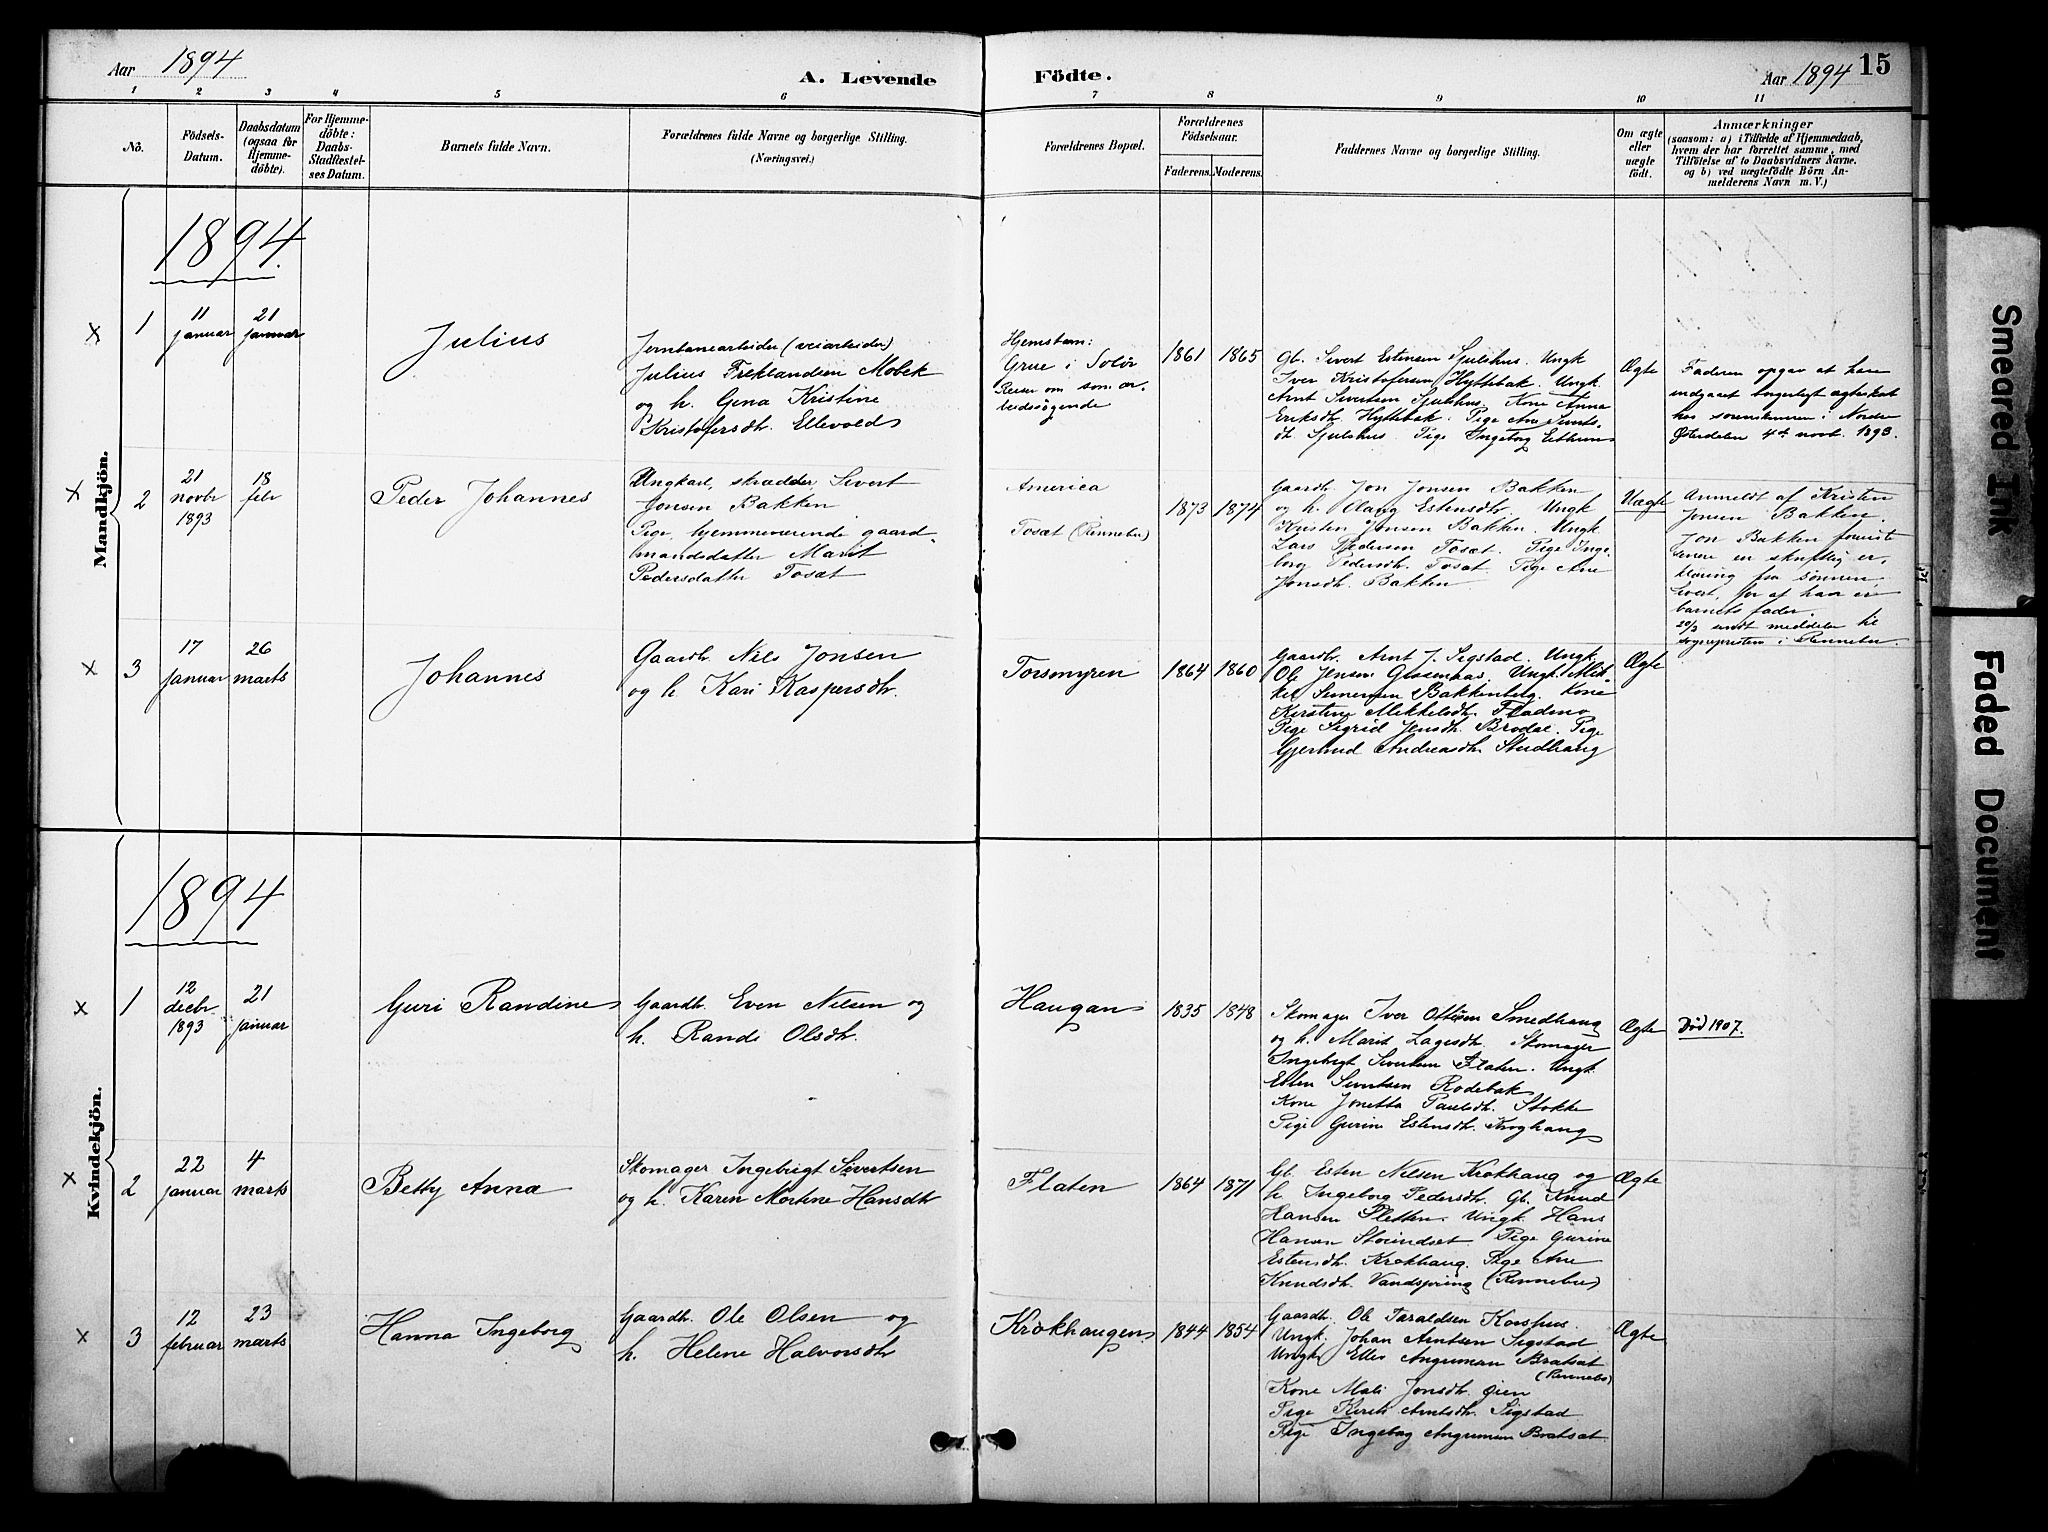 Aar 1894
A. Levende
Födte.
Aar 1894
15
1 2 3 4 5 6 7 8 9 10 11
No.
Födsels-
Datum.
Daabsdatum
(ogsaa for
Hjemme-
döbte).
For Hjemme-
döbte:
Daabs-
Stadfæstel-
ses Datum.
Barnets fulde Navn.
Forældrenes fulde Navne og borgerlige Stilling.
(Næringsvei.)
Forældrenes Bopæl.
Forældrenes
Födselsaar.
Faderens. Moderens.
Faddernes Navne og borgerlige Stilling.
Om ægte
eller
uægte
födt.
Anmærkninger
(saasom: a) i Tilfælde af Hjemmedaab,
hvem der har forrettet samme, med
Tilföielse af to Daabsvidners Navne.
og b) ved uægtefödte Börn An-
melderens Navn m. V.)
Mandkjön.
1894.
×
1
11
januar
21
januar
Julius
Jernbanearbeider (veiarbeider)
Julius Freklandsen Mobek
og h. Gina Kristine
Kristofersdtr. Ellevold
Hjemstavn:
Grue i Solör
Reiser om som ar-
beidssøgende
1861
1865
Gb. Sivert Estensen Sjulshus. Ungk.
Iver Kristofersen Hyttebak. Ungk.
Arnt Sivertsen Sjulshus. Kone Anna
Eriksdtr. Hyttebak. Pige Ane Siverts-
dtr. Sjulshus. Pige Ingeborg
Ægte
Faderen opgav at have
indgaaet borgerligt ægteskab
hos sorenskriveren i Nordre
Østerdalen 4de novb. 1893.
×
2
21
novbr
1893
18
febr
Peder Johannes
Ungkarl, skrædder Sivert
Jonsen Bakken
Pige, hjemmeværende gaard-
mandsdatter Marit
Pedersdatter Tosæt
America
Tosæt (Rennebu)
1873
1874
Gaardbr. Jon Jonsen Bakken
og h. Mary Estensdtr. Ungk
Kristen Jonsen Bakken. Ungk.
Lars Pedersen Tosæt. Pige Inge-
borg Pedersdtr. Tosæt. Pige Ane
Jonsdtr. Bakken
Uægte
Anmeldt af Kristen
Jonsen Bakken.
Jon Bakken foreviste
senere en skriftlig er-
klæring fra sønnen,
Sivert, for at han er
barnets fader.
20/3 sendt meddelelse til
sognepresten i Rennebu.
×
3
17
januar
26
marts
Johannes
Gaardbr. Nils Jonsen
og h. Kari Kaspersdtr.
Torsmyren
1864
1860
Gaardbr. Arnt J. Sigstad. Ungk.
Ole Jensen Gisnaas. Ungk. Mik-
kel Simensen Bakkenberg. Kone
Kirstine Mikkelsdtr. Fladmo
Pige Sigrid Jensdtr. Brodal. Pige
Gjertrud Andreasdtr. Studhaug
Ægte
Kvindekjön.
1894
×
1
12
decbr.
1893
21
januar
Guri Randine
Gaardbr. Even Nilsen og
h. Randi Olsdtr.
Haugan
1835
1848
Skomager Iver Ottesen Smedhaug
og h. Marit Lagesdtr. Skomager
Ingebrigt Sivertsen Flaten. Ungk.
Esten Sivertsen Rodebak
Kone Jonetta Paulsdtr. Stokke
Pige Gurine Estensdtr. Kroghaug
Ægte
Död 1907.
×
2
22
januar
4
marts
Betty Anna
Skomager Ingebrigt Sivertsen
og h. Karen Martine Hansdtr
Flaten
1864
1871
Gb. Esten Nilsen Krokhaug og
h. Ingeborg Pedersdtr. Gb. Knud
Hansen Sletten. Ungk. Hans
Hansen Stoeindset. Pige Gurine
Estensdtr. Krokhaug. Pige Ane
Knudsdtr. Vandspring (Rennebu)
Ægte
×
3
12
februar
23
marts
Hanna Ingeborg
Gaardbr. Ole Olsen og
h. Helene Halvorsdtr
Krokhaugen
1844
1854
Gaardbr. Ole Taraldsen Korshus.
Ungk. Johan Arntsen Sigstad
Ungk Ellev Angrimsen Bratsæt
(Rennebo)
Kone Mali Jonsdtr. Øien
Pige Kirsti Arntsdtr. Sigstad
Pige Ingebog Angrimsen Bratsæt.
Ægte
Smeared Ink
Faded Document